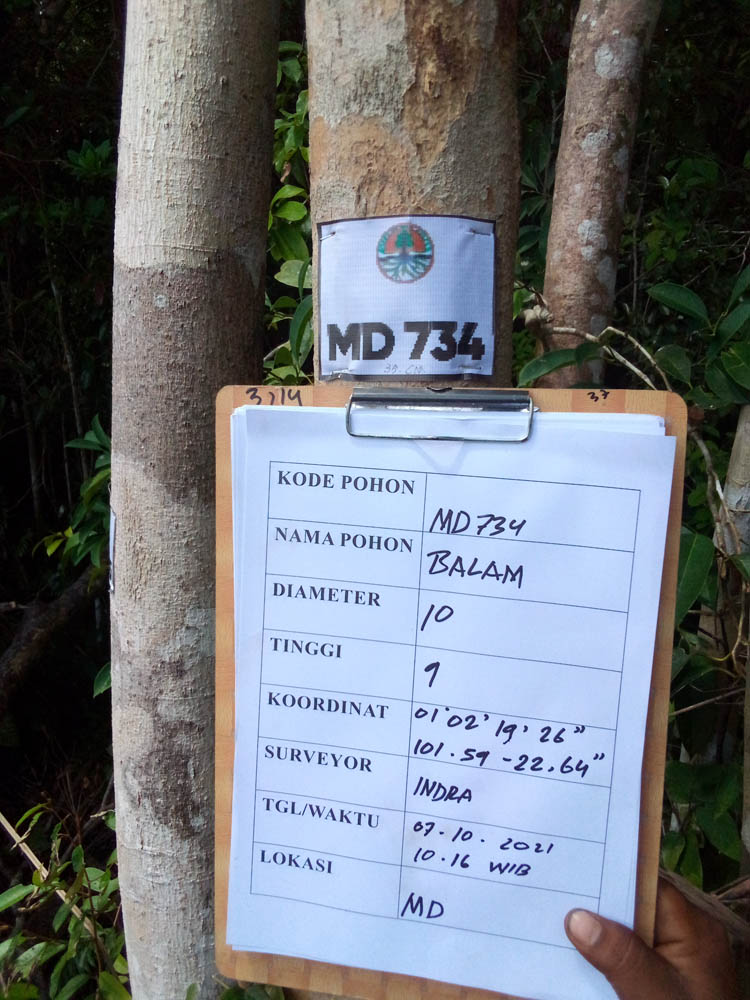 MD 734
35 CM
3,14
37
KODE POHON MD 734
NAMA POHON BALAM
DIAMETER 10
TINGGI 9
KOORDINAT 01°02' 19, 26"
101.59 -22.64"
SURVEYOR INDRA
TGL/WAKTU 07.10.2021
10.16 WIB
LOKASI MD